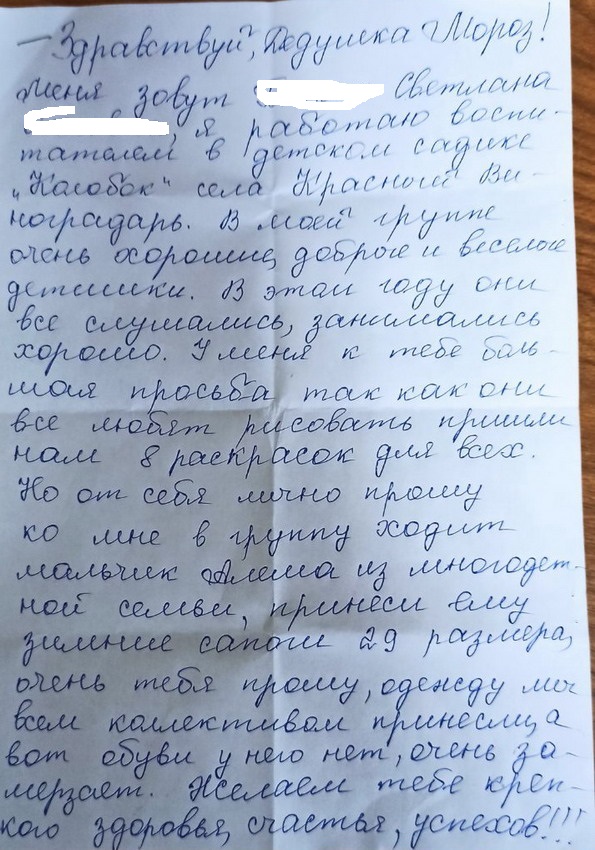 — Здравствуй, Дедушка Мороз!
Меня зовут Светлана
, я работаю воспи-
тателем в детском садике
„Колобок" села Красный Ви-
ноградарь. В моей группе
очень хорошие, доброые и веселые
детишки. В этом году они
все слушались, занимались
хорошо. У меня к тебе боль-
шая просьба так как они
все любят рисовать пришли
нам 8 раскрасок для всех.
Но от себя лично прошу
ко мне в группу ходит
мальчик из многодет-
ной семьи, принеси ему
зимние сапоги 29 размера,
очень тебя прошу, одежду мы
всем коллективом принесли, а
вот обуви у него нет, очень за-
мерзает. Желаем тебе креп-
кого здоровья, счастья, успехов!!!